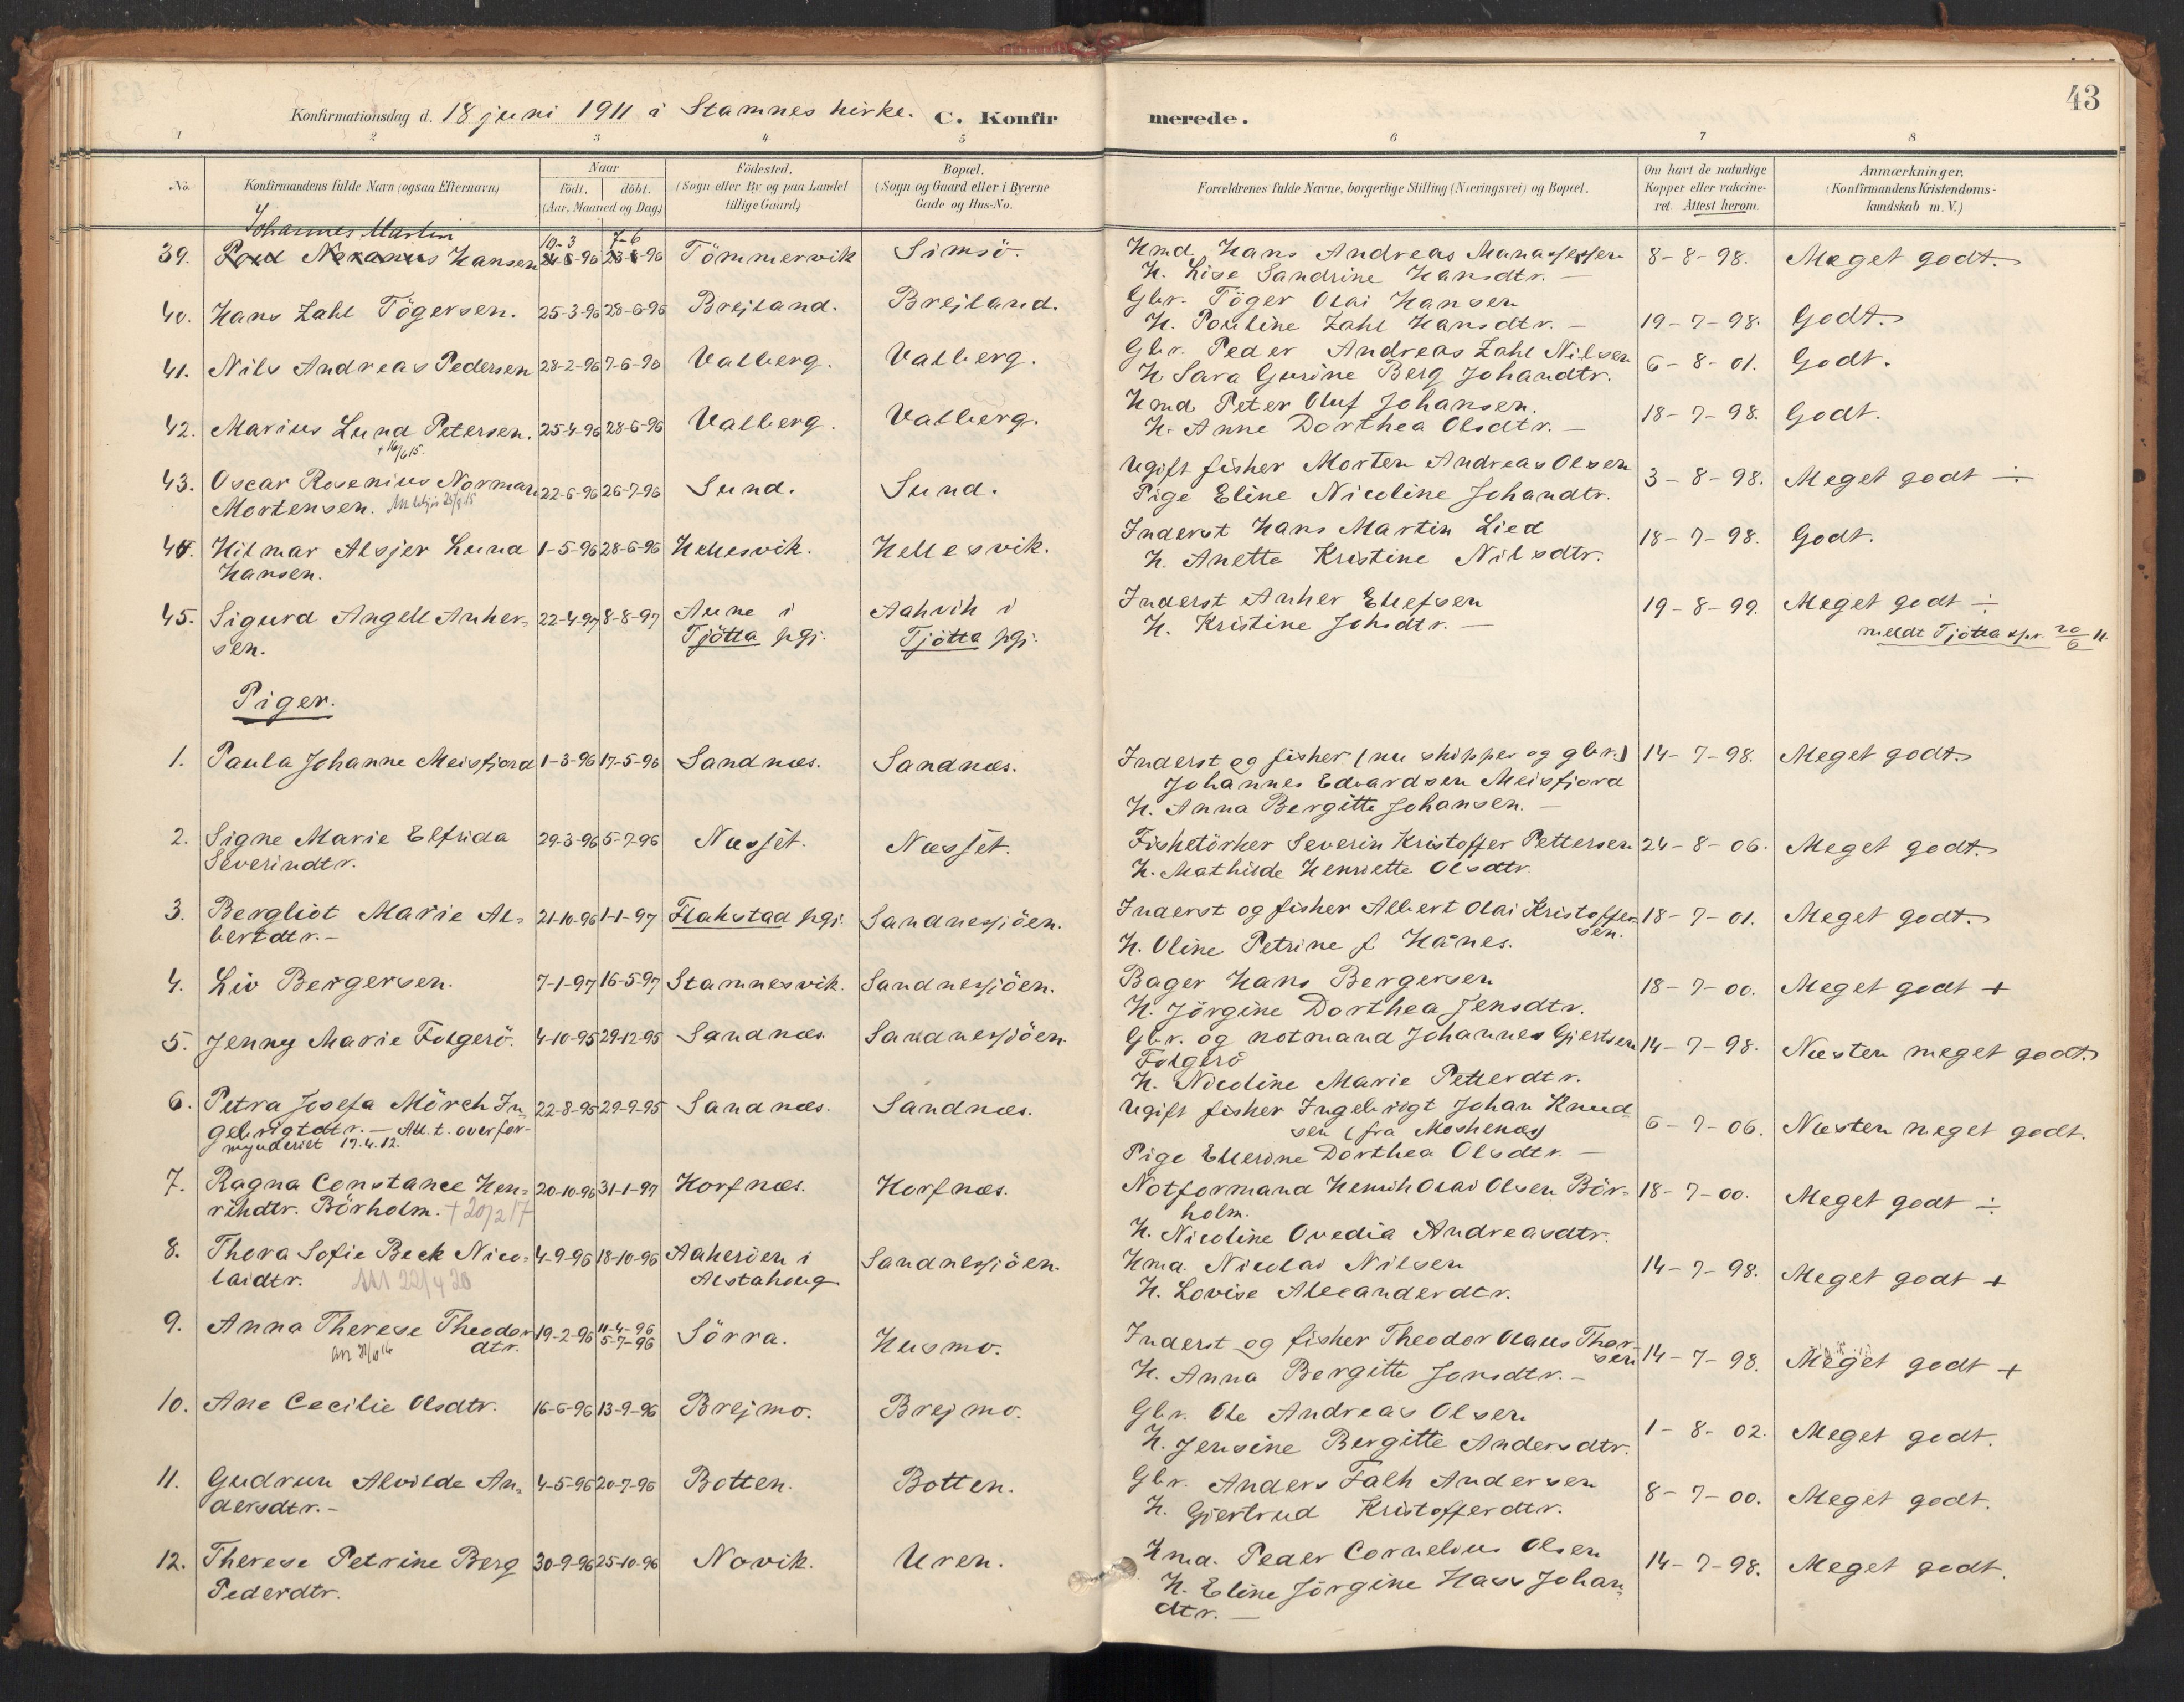 43
Konfirmationsdag d. 18 juni 1911 i Stamnes kirke. C. Konfirmerede.
1 2 3 4 5 6 7 8
No. Konfirmandens fulde Navn (ogsaa Efternavn) Naar född. döbt. (Aar, Maaned og Dag) Födested. (Sogn eller By og paa Landet tillige Gaard) Bopæl. (Sogn og Gaard eller i Byerne Gade og Hus-No. Forældrenes fulde Navne, borgerlige Stilling (Næringsvei) og Bopæl. Om havt de naturlige Kopper eller vakcineret. Attest herom. Anmærkninger. (Konfirmandens Kristendomskundskab m. V.)
Johannes Martin 10-3 7-6
39. Hansen -96 -96 Tömmervik Simsö. Hmd. Hans Andreas Manassesen 8-8-98. Meget godt.
H. Lise Sandrine Hansdtr. —
40. Hans Zahl Tögersen. 25-3-96 28-6-96 Brejland. Brejland. Gbr. Töger Olai Hansen
H. Pouline Zahl Hansdtr. — 19-7-98. Godt.
41. Nils Andreas Pedersen 28-2-96 7-6-96 Valberg. Valberg. Gbr. Peder Andreas Zahl Nilsen 6-8-01. Godt.
H Sara Gurine Berg Johandtr.
42. Marius Lund Petersen. 25-4-96 28-6-96 Valberg. Valberg. Hmd Peter Oluf Johansen. 18-7-98. Godt.
H. Anne Dorthea Olsdtr. —
43. Oscar Rosenius Norman 22-6-96 26-7-96 Sund. Sund. Ugift fisker Morten Andreas Olsen 3-8-98. Meget godt ÷
Mortensen. Pige Eline Nicoline Johandtr.
44. Hilmar Alsjer Lund 1-5-96 28-6-96 Hellesvik. Hellesvik. Inderst Hans Martin Lied 18-7-98. Godt.
Hansen. H. Anette Kristine Nilsdtr.
45. Sigurd Angell Anker- 22-4-97 8-8-97 Aune i Aakvik i Inderst Anker Ellefsen 19-8-99. Meget godt ÷
sen. Tjötta pgj. Tjötta pgj. H. Kristine Johsdtr. — meldt Tjötta spr. 20/6 11.
Piger.
1. Paula Johanne Meisfjord 1-3-96 17-5-96 Sandnæs. Sandnæs. Inderst og fisker (nu skipper og gbr.) 14-7-98. Meget godt.
Johannes Edvardsen Meisfjord
H. Anna Bergitte Johansen. —
2. Signe Marie Elfrida 29-3-96 5-7-96 Næsset. Næsset. Fisketörker Severin Kristoffer Pettersen 24-8-06. Meget godt.
Severindtr. H. Mathilde Henriette Olsdtr.
3. Bergliot Marie Al- 21-10-96 1-1-97 Flakstad pgj. Sandnessjöen. Inderst og fisker Albert Olai Kristoffer- 18-7-01. Meget godt.
bertdtr. — sen.
H. Oline Petrine f. Hånes.
4. Liv Bergersen. 7-1-97 16-5-97 Stamnesvik. Sandnessjöen. Bager Hans Bergersen 18-7-00. Meget godt +
H. Jörgine Dorthea Jensdtr.
5. Jenny Marie Folgerö. 4-10-95 29-12-95 Sandnæs. Sandnessjöen. Gbr. og notmand Johannes Gjertsen 14-7-98. Næsten meget godt.
Folgerö
H. Nicoline Marie Petterdtr.
6. Petra Josefa Mörch In- 22-8-95 29-9-95 Sandnæs. Sandnæs. Ugift fisker Ingebrigt Johan Knud- 6-7-06. Næsten meget godt.
gebrigtdtr. — Att. t. overfor- sen (fra Moskenæs)
mynderiet 17.4.12. Pige Ellerine Dorthea Olsdtr. —
7. Ragna Constance Hen- 20-10-96 31-1-97 Horfnæs. Horfnæs. Notformand Henrik Olai Olsen Bör- 18-7-00. Meget godt ÷
rikdtr. Börholm. † 20/2 17 holm.
H. Nicoline Ovedia Andreasdtr.
8. Thora Sofie Beck Nico- 4-9-96 18-10-96 Aakeröen i Sandnessjöen. Hmd. Nicolai Nilsen 14-7-98. Meget godt +
laidtr. 22/4 20 Alstahoug H. Lovise Alexanderdtr.
9. Anna Therese Theodor 19-2-96 11-4-96 5-7-96 Sörra. Husmo. Inderst og fisker Theodor Olaus Thor- 14-7-98. Meget godt +
dtr. sen
H. Anna Bergitte Jonsdtr. —
10. Ane Cecilie Olsdtr. 16-6-96 13-9-96 Brejmo. Brejmo. Gbr. Ole Andreas Olsen 1-8-02. Meget godt.
H. Jensine Bergitte Andersdtr.
11. Gudrun Alvilde An- 4-5-96 20-7-96 Botten. Botten. Gbr. Anders Falk Andersen 8-7-00. Meget godt.
dersdtr. — H. Gjertrud Kristofferdtr.
12. Therese Petrine Berg 30-9-96 25-10-96 Novik. Uren. Hmd. Peder Cornelius Olsen 14-7-98. Meget godt.
Pederdtr. H. Eline Jörgine Hass Johan-
dtr. —